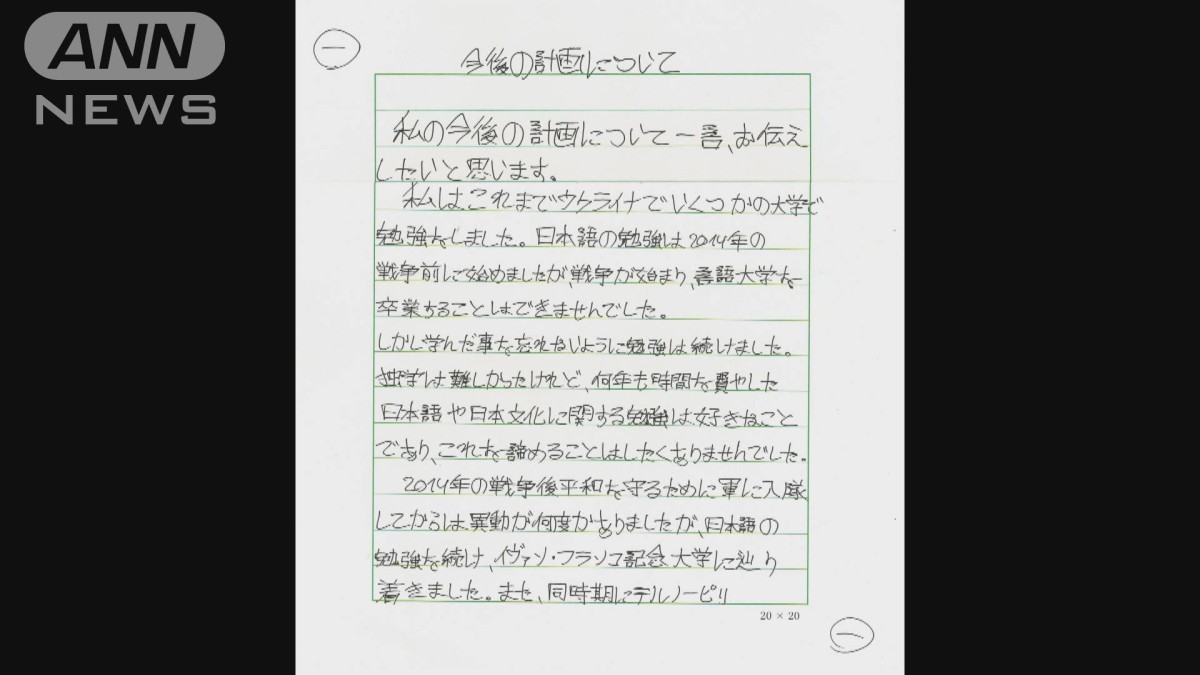 ANN
NEWS
一
今後の計画について
私の今後の計画について一言、お伝え
したいと思います。
私はこれまでウクライナでいくつかの大学で
勉強をしました。日本語の勉強は2014年の
戦争前に始めましたが、戦争が始まり、言語大学を
卒業することはできませんでした。
しかし学んだ事を忘れないように勉強は続けました。
独学は難しかったけれど、何年も時間を費やした
日本語や日本文化に関する勉強は好きなこと
であり、これを諦めることはしたくありませんでした。
2014年の戦争後平和を守るために軍に入隊
してからは異動が何度かありましたが、日本語の
勉強を続け、イヴァン・フランコ記念大学に辿り
着きました。また、同時期にテルノーピリ
20 × 20
一